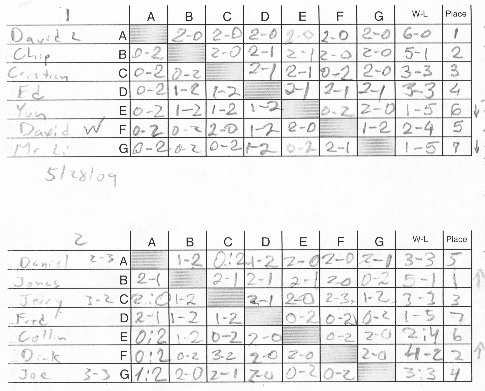 1 A B C D E F G W-L Place
David L A 2-0 2-0 2-0 2-0 2-0 2-0 6-0 1
Chip B 0-2 2-0 2-1 2-1 2-0 2-0 5-1 2
Cristian C 0-2 0-2 2-1 2-1 0-2 2-0 3-3 3
Ed D 0-2 1-2 1-2 2-1 2-1 2-1 3-3 4
Yun E 0-2 1-2 1-2 1-2 0-2 2-0 1-5 6 ↓
David W F 0-2 0-2 2-0 1-2 2-0 1-2 2-4 5
Mr Li G 0-2 0-2 0-2 1-2 0-2 2-1 1-5 7 ↓
5/28/09
2 A B C D E F G W-L Place
Daniel 2-3 A 1-2 0:2 1-2 2-0 2-0 2-1 3-3 5
Jonas B 2-1 2-1 2-1 2-1 2-0 0-2 5-1 1 ↑
Jerry 3-2 C 2:0 1-2 2-1 2-0 2-3 1-2 3-3 3
Fred D 2-1 1-2 1-2 0-2 0-2 0-2 1-5 7
Collin E 0:2 1-2 0-2 2-0 0-2 2-0 2:4 6
Dick F 0:2 0-2 3-2 2-0 2-0 2-0 4-2 2 ↑
Joe 3-3 G 1:2 2-0 2-1 2-0 0-2 0-2 3:3 4